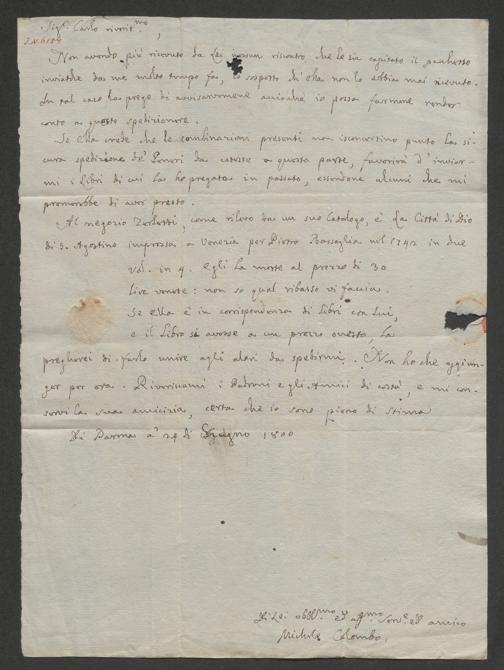 Sig.r Carlo riverit.mo,
Non avendo più ricevuto da Lei nessun riscontro, che le sia capitato il pacchetto
inviatole da me molto tempo fa, io sospetto ch'ella non lo abbia mai ricevuto.
In tal caso la prego di avvisarmene acciochè io possa farmene render
conto a questo speditionere.
Se Ella crede che le combinazioni presenti non isconcertino punto la si-
cura spedizione de' generi da costà a questa parte, favorirà d'inviar-
mi i Libri di cui la ho pregata in passato, essendone alcuni che mi
premerebbe di aver presto.
Al negozio Zerletti, come rilevo da un suo Catalogo, è La Città di Dio
di S. Agostino impressa a Venezia per Pietro Bassaglia nel 1742 in due
vol. in 4. Egli la mette al prezzo di 30
Lire venete: non so qual ribasso vi faccia.
Se ella è in corrispondenza di Libri con Lui,
e il Libro si avesse a un prezzo onesto, la
pregherei di farlo unire agli altri da spedirmi. Non ho che aggiun-
ger per ora. Riveriscami i Padroni e gli Amici di costà, e mi con-
servi la sua amicizia, certa che io sono pieno di stima
Di Parma a' 24 di Giugno 1800
Di Lei obbl.mo ed aff.mo Serv.e ed amico
Michele Colombo.